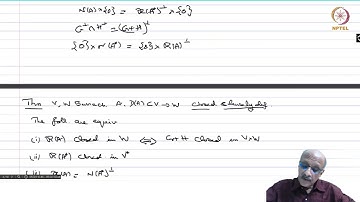 NPTEL
N(A)×{0} = R(A*)^⊥ × {0}
G^⊥ ∩ H^⊥ = (G+H)^⊥
{0}×N(A*) = {0}×R(A)^⊥
Thm V, W Banach A: D(A)⊂V→W closed & densely def
The foll. are equiv
(i) R(A) closed in W ⟺ G+H closed in V×W
(ii) R(A*) closed in V*
R(A) = N(A*)^⊥